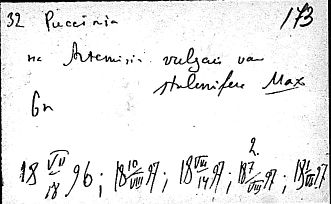 32 Puccinia 173
na Artemisia vulgaris var
stolonifera Max
2.
18 VII/18 96; 18 10/VIII 97; 18 VII/14 97; 18 7/VIII 97;